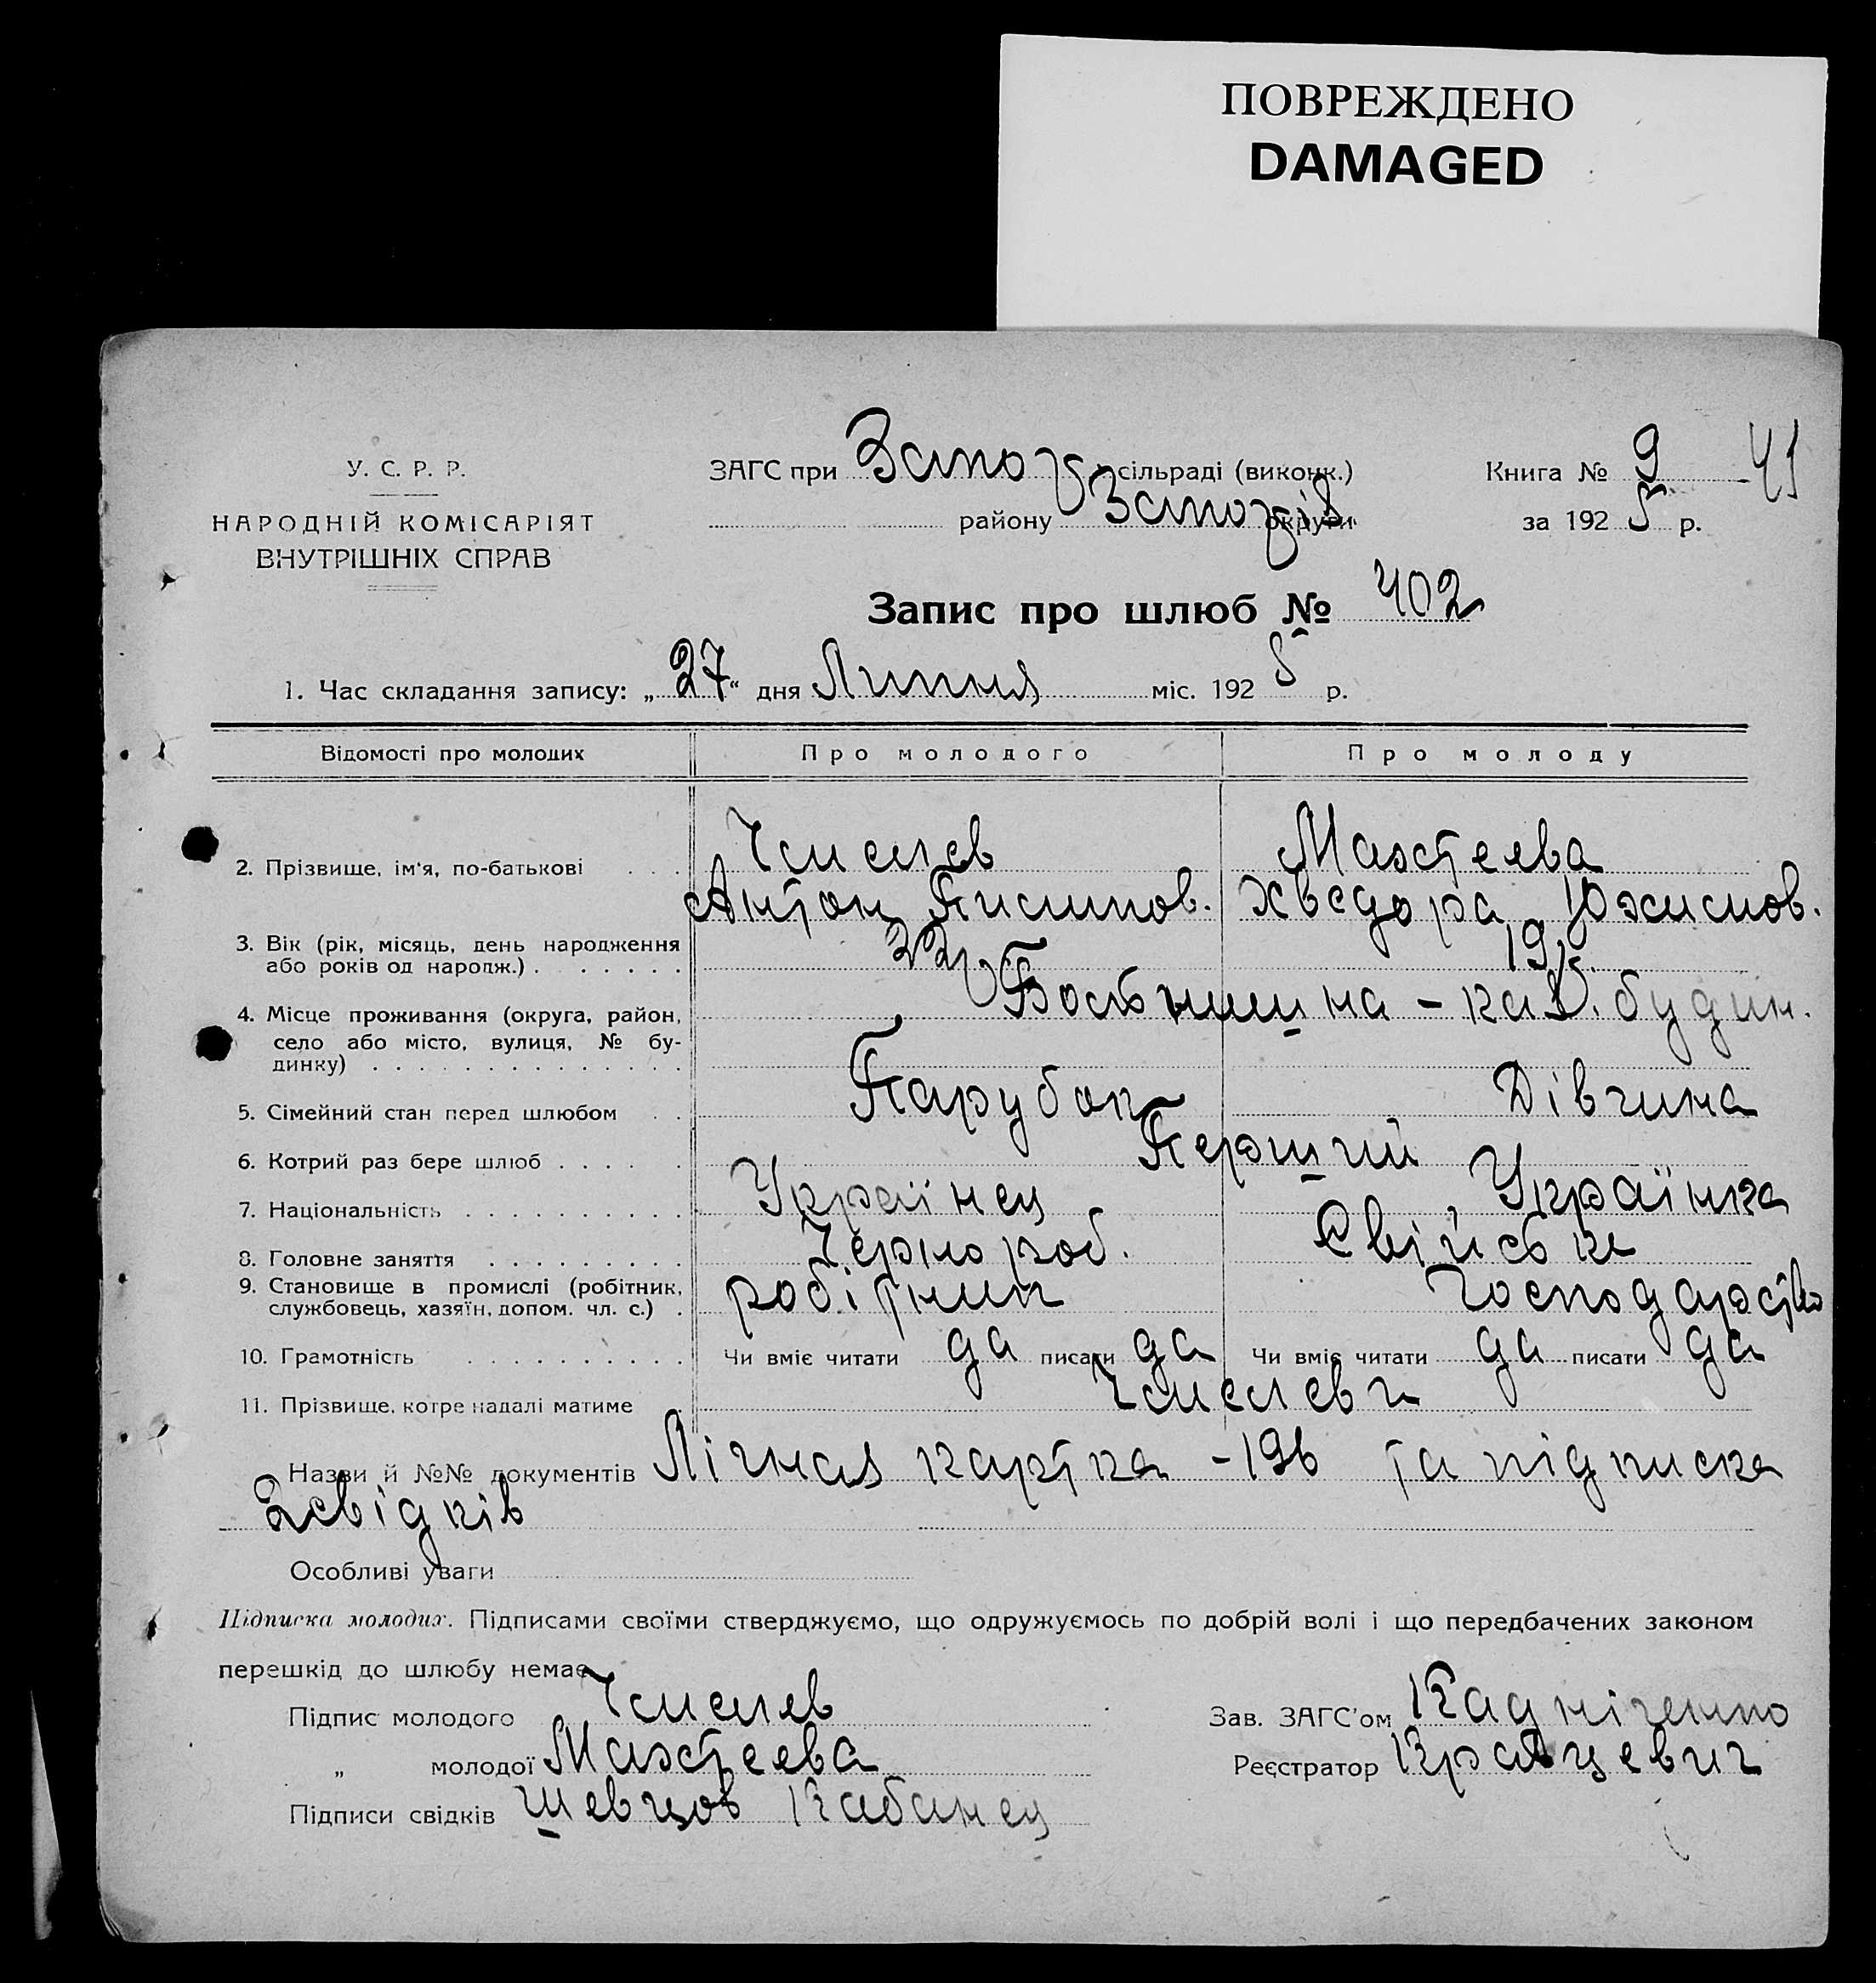 ПОВРЕЖДЕНО
DAMAGED
У. С. Р. Р.
НАРОДНІЙ КОМІСАРІЯТ
ВНУТРІШНІХ СПРАВ
ЗАГС при Запор сільраді (виконк.)
району Запоріз. округи
Книга № 9 41
за 1925 р.
Запис про шлюб № 402
1. Час складання запису: „27“ дня Липня міс. 1925 р.
Відомості про молодих Про молодого Про молоду
2. Прізвище, ім'я, по-батькові . . . Чмелев Махтеева
Антон Хведора
3. Вік (рік, місяць, день народження 22 19
або років од народж.) . . . . . . .
4. Місце проживання (округа, район, каз. будин.
село або місто, вулиця, № бу-
динку) . . . . . . . . . . . . . .
5. Сімейний стан перед шлюбом . . Парубок Дівчина
6. Котрий раз бере шлюб . . . . . Перший
7. Національність . . . . . . . . . . Українец Українка
8. Головне заняття . . . . . . . . . Чернороб. Свійське
9. Становище в промислі (робітник, робітник господарство
службовець, хазяїн, допом. чл. с.) .
10. Грамотність . . . . . . . . . . Чи вміє читати да писати да Чи вміє читати да писати да
11. Прізвище, котре надалі матиме Чмелеви
Назви й №№ документів Лічная картка - 196 та підписка
2 свідків
Особливі уваги
Підписка молодих. Підписами своїми стверджуємо, що одружуємось по добрій волі і що передбачених законом
перешкід до шлюбу немає
Підпис молодого Чмелев
„ молодої Махтеева
Підписи свідків Шевцов Кабанец
Зав. ЗАГС'ом
Реєстратор Кравцевич